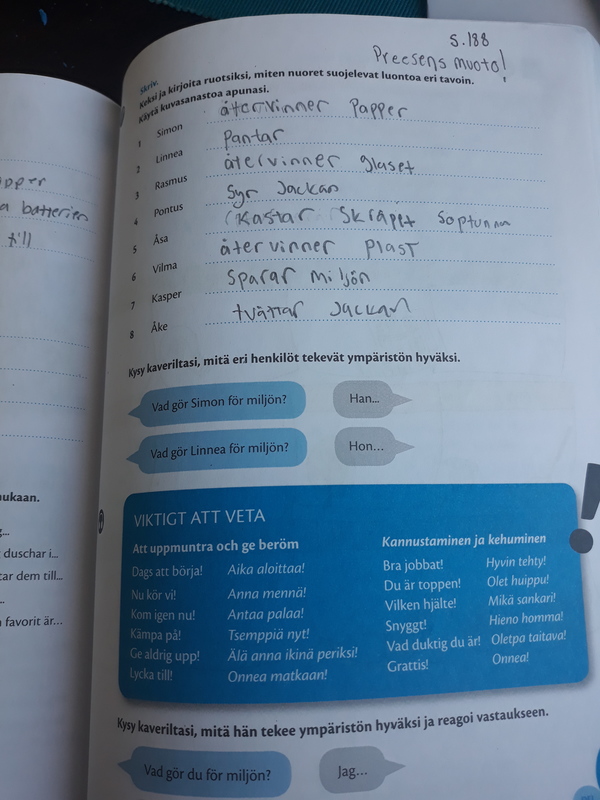 s.188
Preesens muoto!
Skriv.
Keksi ja kirjoita ruotsiksi, miten nuoret suojelevat luontoa eri tavoin.
Käytä kuvasanastoa apunasi.
1 Simon återvinner Papper
2 Linnea Pantar
3 Rasmus återvinner glaset
4 Pontus Syr Jackan
5 Åsa (Kastar Skräpet Soptunna
6 Vilma återvinner Plast
7 Kasper Sparar miljön
8 Åke tvättar Jackan
Kysy kaveriltasi, mitä eri henkilöt tekevät ympäristön hyväksi.
Vad gör Simon för miljön? Han...
Vad gör Linnea för miljön? Hon...
VIKTIGT ATT VETA
Att uppmuntra och ge beröm Kannustaminen ja kehuminen
Dags att börja! Aika aloittaa! Bra jobbat! Hyvin tehty!
Nu kör vi! Anna mennä! Du är toppen! Olet huippu!
Kom igen nu! Antaa palaa! Vilken hjälte! Mikä sankari!
Kämpa på! Tsemppiä nyt! Snyggt! Hieno homma!
Ge aldrig upp! Älä anna ikinä periksi! Vad duktig du är! Oletpa taitava!
Lycka till! Onnea matkaan! Grattis! Onnea!
Kysy kaveriltasi, mitä hän tekee ympäristön hyväksi ja reagoi vastaukseen.
Vad gör du för miljön? Jag...
batterien
till
ukaan.
duschar i...
tar dem till...
favorit är...